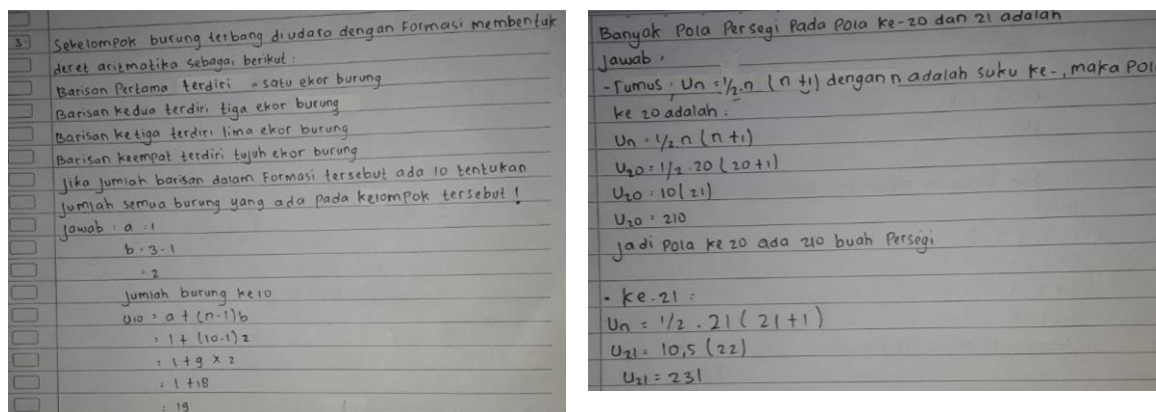 3. Sekelompok burung terbang diudara dengan Formasi membentuk
deret aritmatika sebagai berikut :
Barisan Pertama terdiri = satu ekor burung
Barisan kedua terdiri tiga ekor burung
Barisan ketiga terdiri lima ekor burung
Barisan keempat terdiri tujuh ekor burung
Jika jumlah barisan dalam Formasi tersebut ada 10 tentukan
jumlah semua burung yang ada pada kelompok tersebut !
Jawab : a = 1
b = 3 - 1
= 2
Jumlah burung ke 10
U10 = a + (n-1)b
= 1 + (10-1) 2
= 1 + 9 x 2
= 1 + 18
= 19
Banyak Pola Persegi Pada Pola ke-20 dan 21 adalah
Jawab :
- Rumus : Un = 1/2.n (n+1) dengan n adalah suku ke-, maka Pol
ke 20 adalah :
Un = 1/2.n (n+1)
U20 = 1/2 . 20 (20+1)
U20 = 10(21)
U20 = 210
Jadi Pola ke 20 ada 210 buah Persegi
- ke.21 :
Un = 1/2 . 21 (21+1)
U21 = 10,5 (22)
U21 = 231